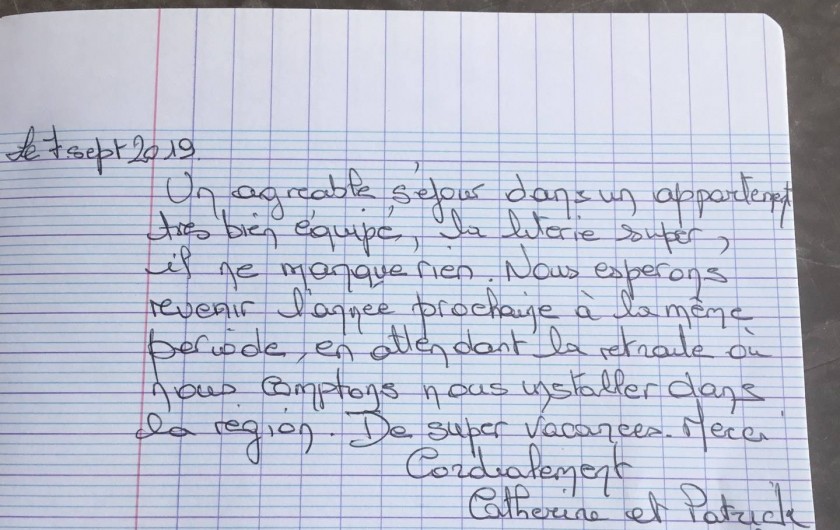 le 7 sept 2019.
Un agréable séjour dans un appartement
très bien équipé, la literie super,
il ne manque rien. Nous esperons
revenir l'année prochaine à la même
période, en attendant la retraite où
nous comptons nous installer dans
la région. De super vacances. Merci
Cordialement
Catherine et Patrick